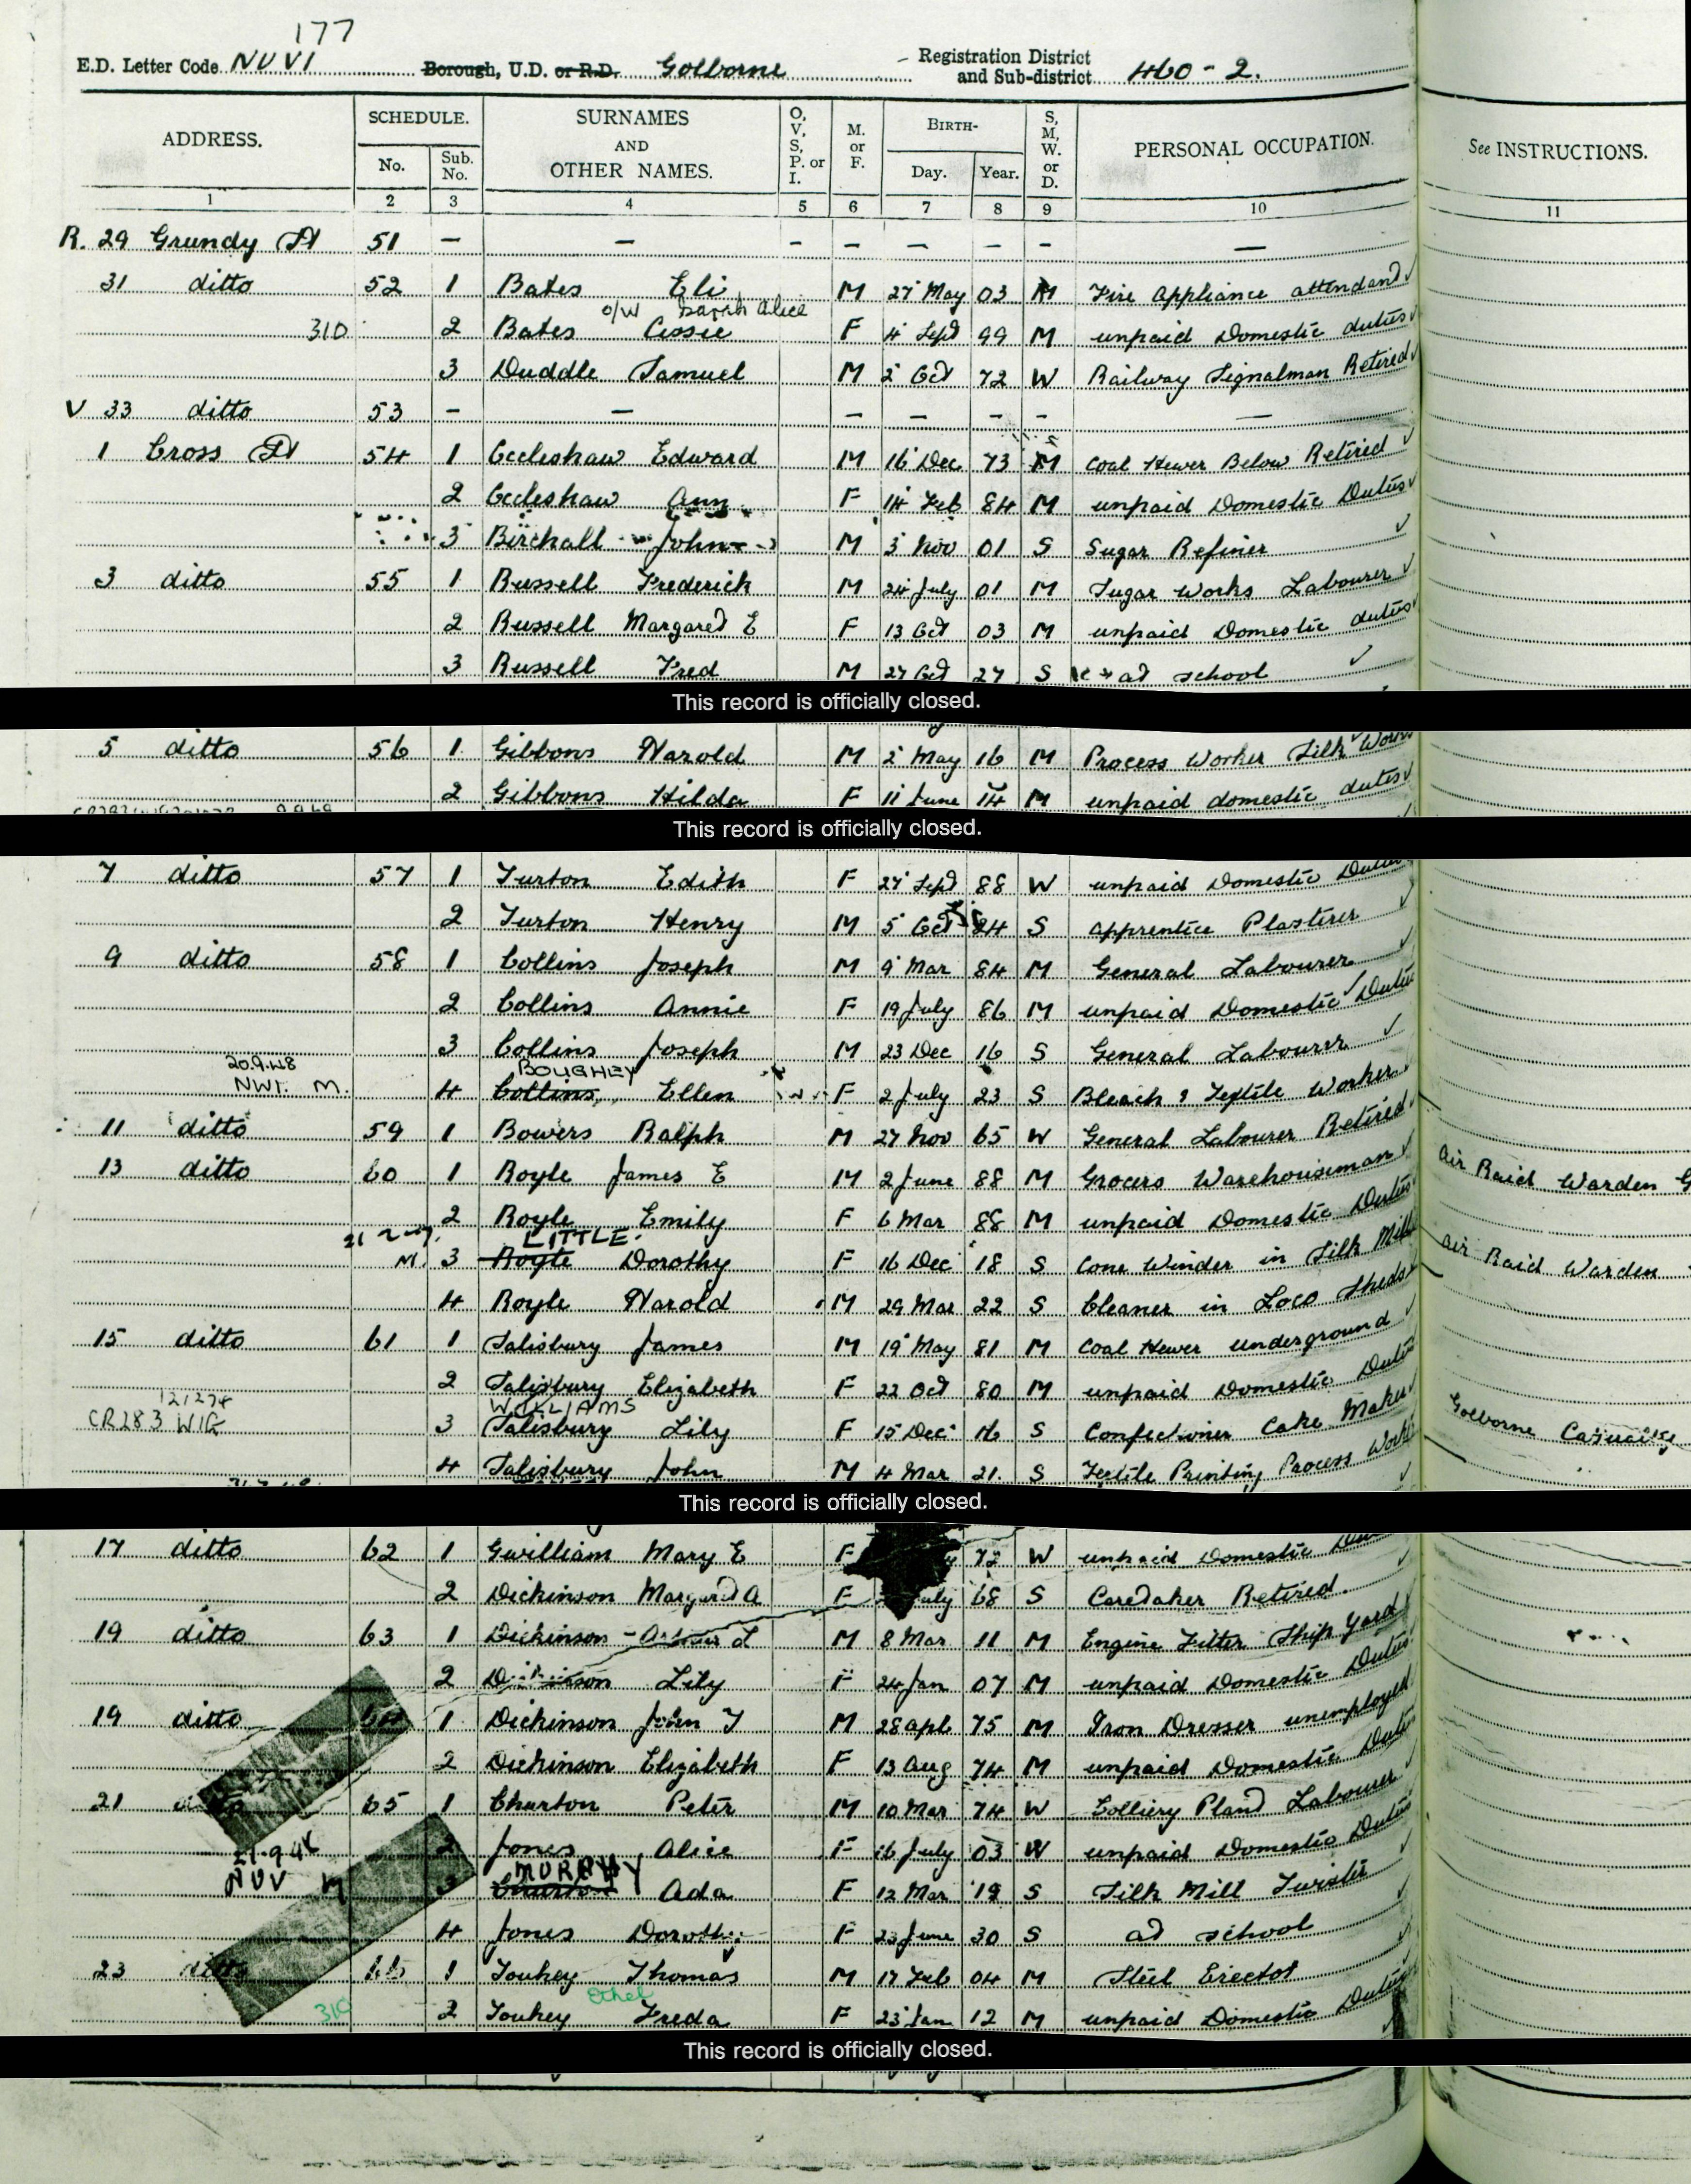 177
E.D. Letter Code NUVI Borough, U.D. or R.D. Golborne Registration District and Sub-district 460-2.
ADDRESS. SCHEDULE. No. Sub. No. SURNAMES AND OTHER NAMES. O, V, S, P. or I. M. or F. BIRTH- Day. Year. S, M, W. or D. PERSONAL OCCUPATION. See INSTRUCTIONS.
1 2 3 4 5 6 7 8 9 10 11
R. 29 Grundy St 51 — — — — — — — —
31 ditto 52 1 Bates Eli M 27 May 03 M Fire Appliance attendant
o/w Sarah Alice
310 2 Bates Cissie F 4 Sept 99 M unpaid Domestic duties
3 Duddle Samuel M 2 Oct 72 W Railway Signalman Retired
V 33 ditto 53 - — — — — — —
1 Cross St 54 1 Eccleshaw Edward M 16 Dec 73 M Coal Hewer Below Retired
2 Eccleshaw Ann F 14 Feb 84 M unpaid Domestic Duties
3 Birchall John M 3 Nov 01 S Sugar Refiner
3 ditto 55 1 Russell Frederick M 24 July 01 M Sugar Works Labourer
2 Russell Margaret E F 13 Oct 03 M unpaid Domestic duties
3 Russell Fred M 27 Oct 27 S at school
This record is officially closed.
5 ditto 56 1 Gibbons Harold M 2 May 16 M Process Worker Silk Works
2 Gibbons Hilda F 11 June 14 M unpaid domestic duties
This record is officially closed.
7 ditto 57 1 Turton Edith F 27 Sept 88 W unpaid Domestic Duties
2 Turton Henry M 5 Oct 24 S apprentice Plasterer
9 ditto 58 1 Collins Joseph M 9 Mar 84 M General Labourer
2 Collins Annie F 19 July 86 M unpaid Domestic Duties
3 Collins Joseph M 23 Dec 16 S General Labourer
20.9.48 BOUGHEY
NWI. M. 4 Collins Ellen F 2 July 23 S Bleach & Textile Worker
11 ditto 59 1 Bowers Ralph M 27 Nov 65 W General Labourer Retired
13 ditto 60 1 Royle James E M 2 June 88 M Grocers Warehouseman Air Raid Warden G
2 Royle Emily F 6 Mar 88 M unpaid Domestic Duties
LITTLE
M. 3 Royle Dorothy F 16 Dec 18 S Cone Winder in Silk Mill Air Raid Warden
4 Royle Harold M 29 Mar 22 S Cleaner in Loco Sheds
15 ditto 61 1 Salisbury James M 19 May 81 M Coal Hewer underground
2 Salisbury Elizabeth F 22 Oct 80 M unpaid Domestic Duties
121274 WILLIAMS
CR283 WIG 3 Salisbury Lily F 15 Dec 16 S Confectioner Cake Maker Golborne Casualty
4 Salisbury John M 4 Mar 21 S Textile Printing Process Work
This record is officially closed.
17 ditto 62 1 Gwilliam Mary E F 72 W unpaid Domestic Duties
2 Dickinson Margaret A F July 68 S Caretaker Retired
19 ditto 63 1 Dickinson Arthur L M 8 Mar 11 M Engine Fitter Ship Yard
2 Dickinson Lily F 24 Jan 07 M unpaid Domestic Duties
19 ditto 64 1 Dickinson John T M 28 Apl 75 M Iron Dresser unemployed
2 Dickinson Elizabeth F 13 Aug 74 M unpaid Domestic Duties
21 65 1 Churton Peter M 10 Mar 74 W Colliery Plant Labourer
2 Jones Alice F 16 July 03 W unpaid Domestic Duties
MURPHY
NUV M 3 Churton Ada F 12 Mar 19 S Silk Mill Twister
4 Jones Dorothy F 23 June 30 S at school
23 ditto 66 1 Touhey Thomas M 17 Feb 04 M Steel Erector
Ethel
310 2 Touhey Freda F 23 Jan 12 M unpaid Domestic Duties
This record is officially closed.